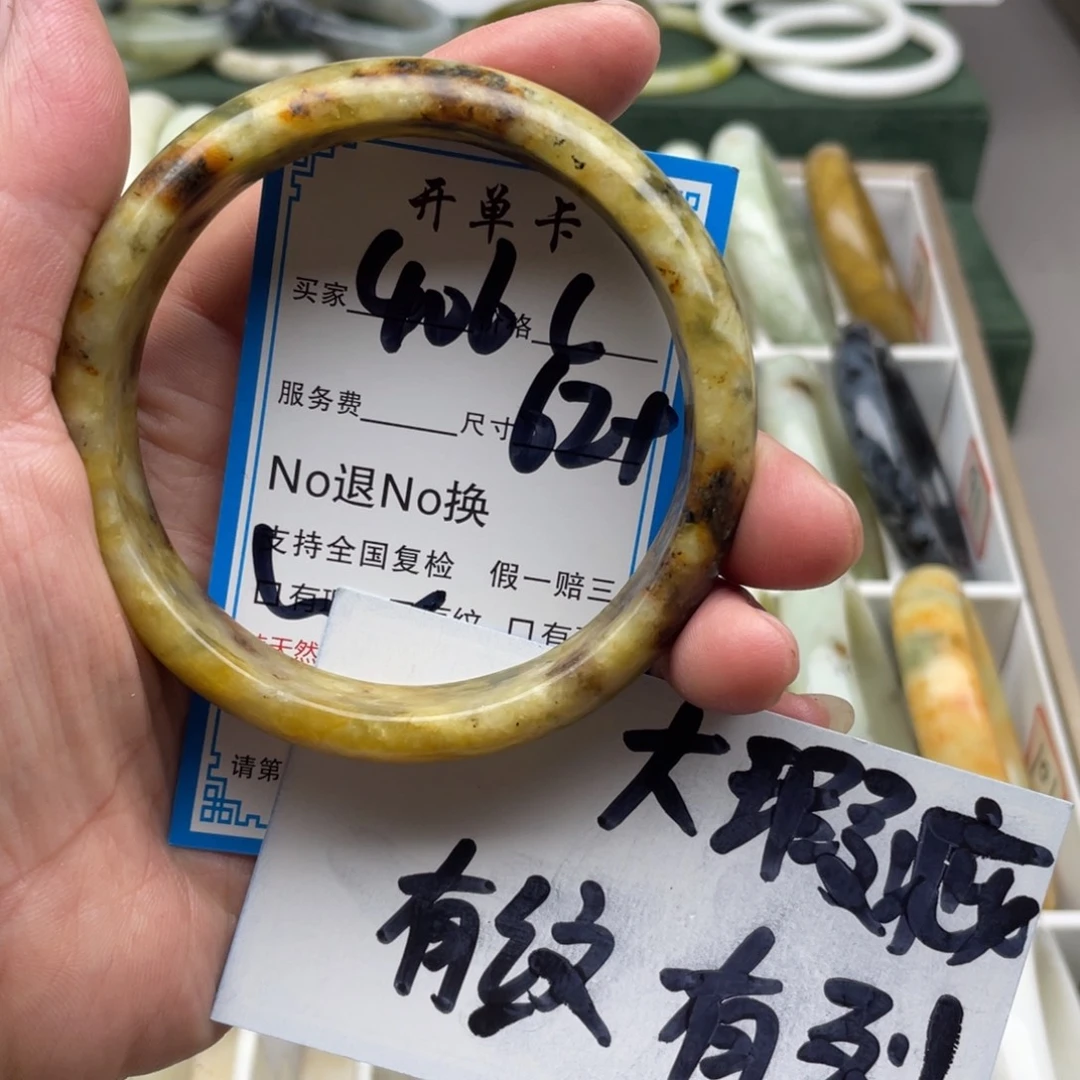 开单卡
买家 406 格 L
服务费 尺寸 62+
No退No换
支持全国复检 假一赔三
天然
请第
大瑕疵
有纹 有列